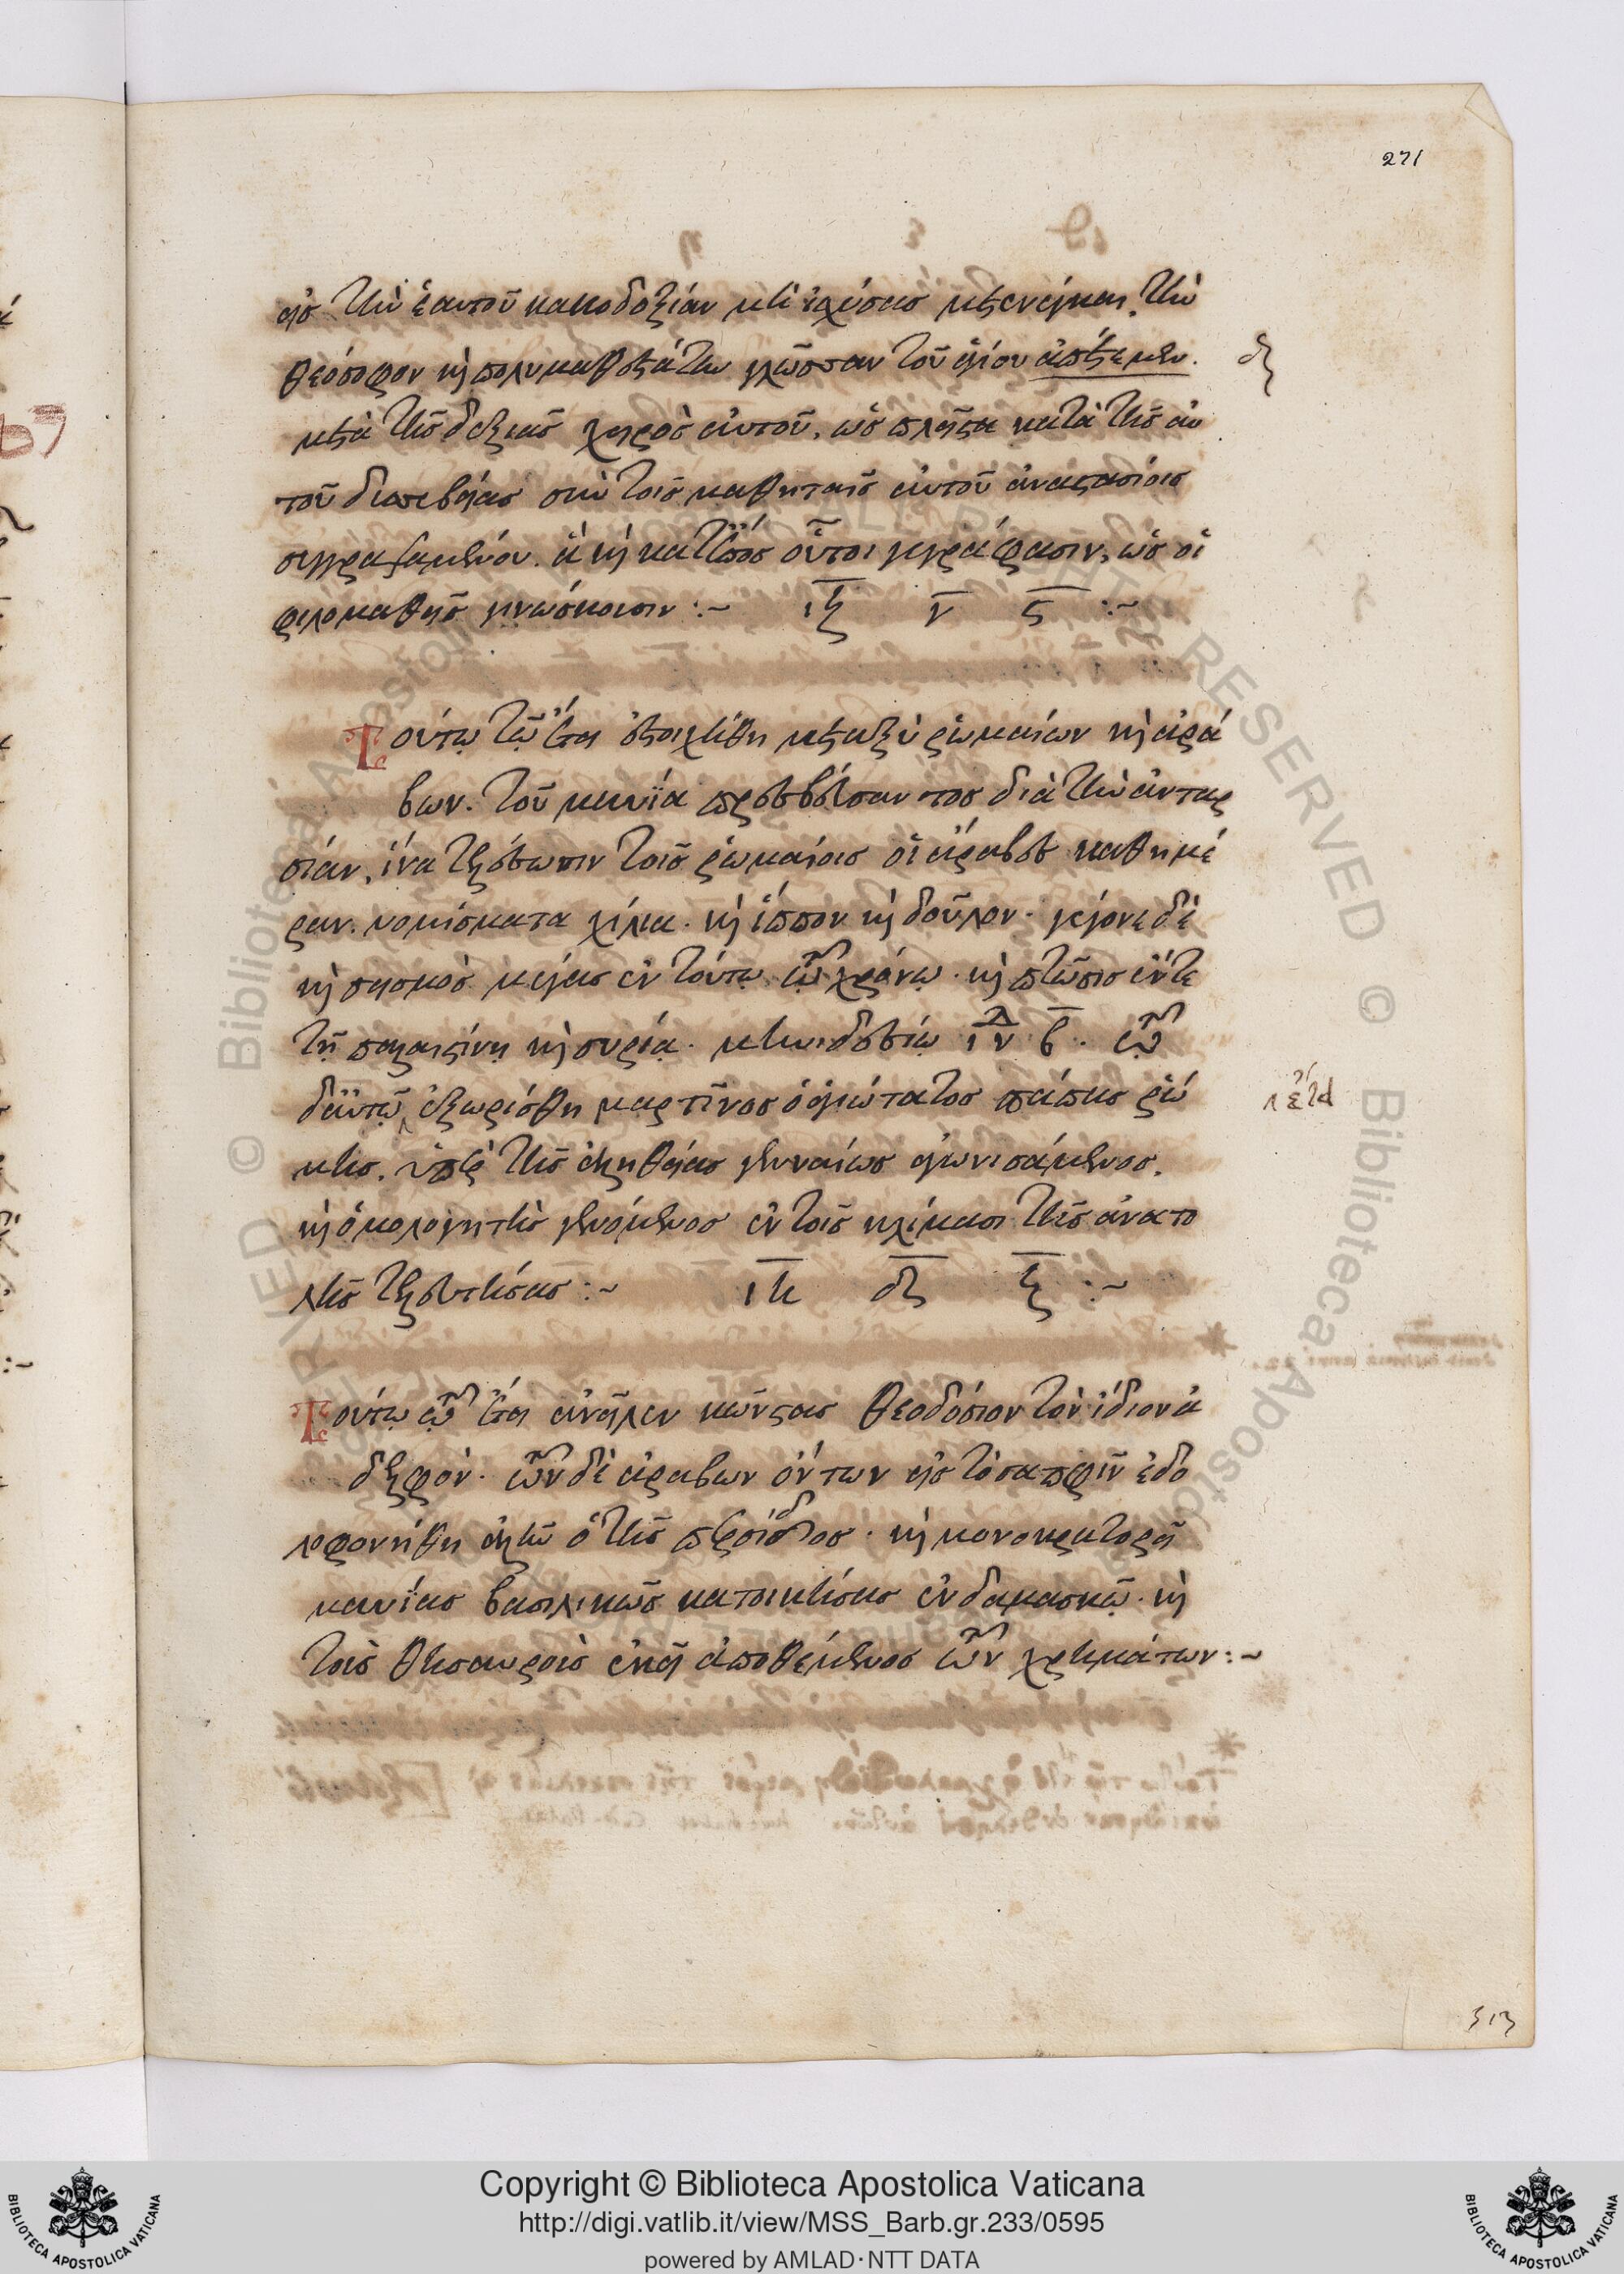 271
εἰς τὴν ἑαυτοῦ κακοδοξίαν μὴ ἰσχύσας μετενέγκαι, τὴν
θεόσοφον καὶ πολυμαθεστάτην γλῶτταν τοῦ ἁγίου ἀπέτεμεν.
μετὰ τῆς δεξιᾶς χειρὸς αὐτοῦ, ὡς πλεῖστα κατὰ τῆς αὐ
τοῦ δυσσεβείας σὺν τοῖς μαθηταῖς αὐτοῦ ἀναστασίοις
συγγραψαμένου. ἃ καὶ κατ' ἔπος οὗτοι γεγράφασιν, ὡς οἱ
φιλομαθεῖς γινώσκουσιν :~ ιζ ν ς :~
Τούτῳ τῷ ἔτει ἐστοιχήθη μεταξὺ ῥωμαίων καὶ ἀρά
βων. τοῦ μαυΐα πρεσβεύσαντος διὰ τὴν ἀνταρ
σίαν, ἵνα τελέσωσιν τοῖς ῥωμαίοις οἱ ἄραβες καθημέ
ραν. νομίσματα χίλια. καὶ ἵππον καὶ δοῦλον. γέγονε δὲ
καὶ σεισμὸς μέγας ἐν τούτῳ τῷ χρόνῳ. καὶ πτῶσις ἔν τε
τῇ παλαιστίνῃ καὶ συρίᾳ. μηνὶ δεσίῳ ἰνδ β. τῷ
δ' αὐτῷ ἐξωρίσθη μαρτῖνος ὁ ἁγιώτατος πάπας ῥώ
μης. ὑπὲρ τῆς ἀληθείας γενναίως ἀγωνισάμενος.
καὶ ὁμολογητὴς γενόμενος ἐν τοῖς κλίμασι τῆς ἀνατο
λῆς τελευτήσας :~ ιη δς ζ :~
ἔτει
Τούτῳ τῷ ἔτει ἀνεῖλεν κώνστας θεοδόσιον τὸν ἴδιον ἀ
δελφὸν. τῶν δὲ ἀράβων ὄντων εἰς τὸ σαπφὶν ἐδο
λοφονήθη ἀλῖμ ὁ τῆς περσίδος. καὶ μονοκρατορεῖ
μαυΐας βασιλικῶς κατοικήσας ἐν δαμασκῷ. καὶ
τοὺς θησαυροὺς ἐκεῖ ἀποθέμενος τῶν χρημάτων :~
313
Copyright © Biblioteca Apostolica Vaticana
http://digi.vatlib.it/view/MSS_Barb.gr.233/0595
powered by AMLAD·NTT DATA